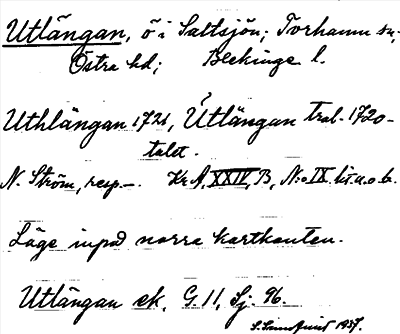 Utlängan, ö i Saltsjön; Torhamn sn;
Östra hd; Blekinge l.
Uthlängan 1721, Utlängan trol. 1720-
talet.
N. Ström, resp. –. Kr. A, XXIV, B, N:o IX lit. a. o. b.
Läge invid norra kartkanten.
Utlängan ek. G. 11, Sj. 96.
S. Landkvist 1937.